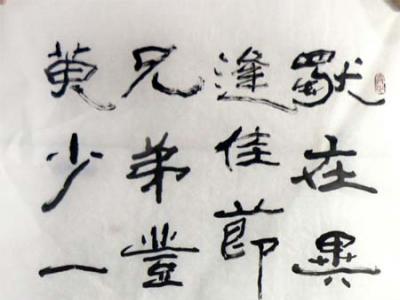 獨在異
逢佳節
兄弟登
萸少一